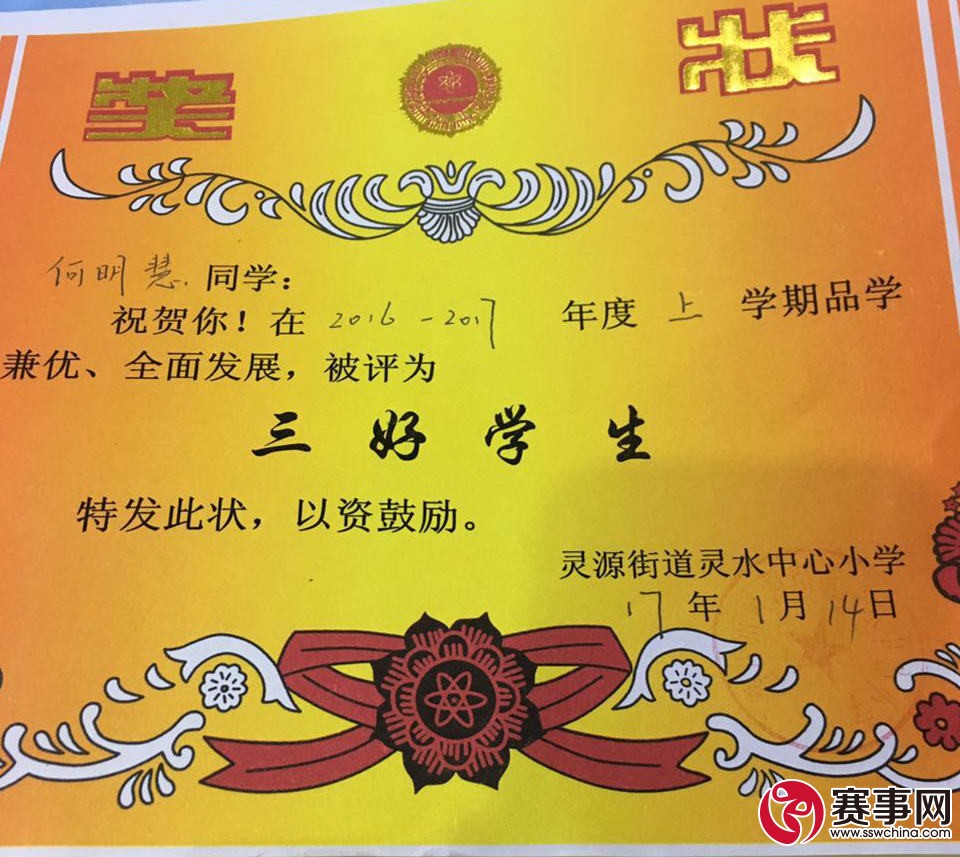 奖 状
何明慧 同学：
祝贺你！在 2016-2017 年度 上 学期品学
兼优、全面发展，被评为
三好学生
特发此状，以资鼓励。
灵源街道灵水中心小学
17 年 1 月 14 日
赛事网
www.sswchina.com